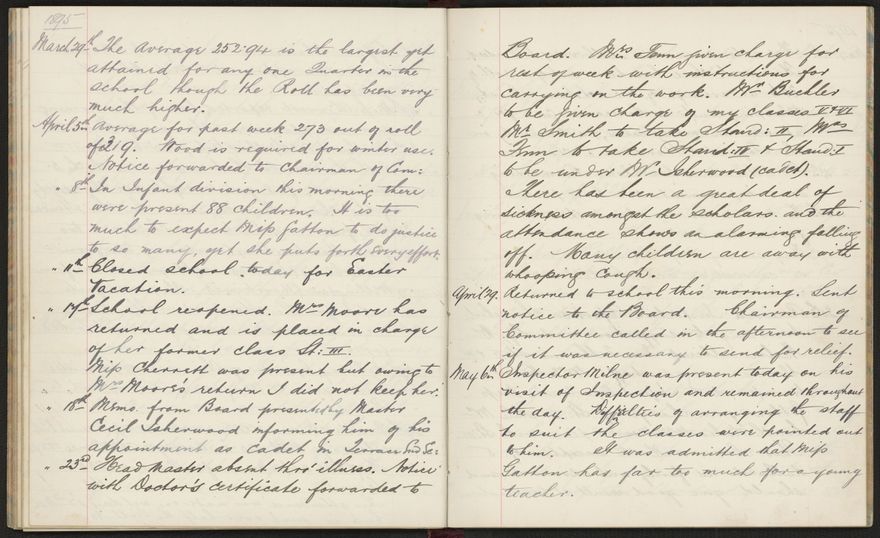 1895
March 29th The average 252.94 is the largest yet
attained for any one Quarter in the
School though the Roll has been very
much higher.
April 5th Average for past week 273 out of roll
of 319. Wood is required for winter use.
Notice forwarded to Chairman of Com:
" 8th In Infant division this morning there
were present 88 children. It is too
much to expect Miss Gatton to do justice
to so many, yet she puts forth every effort.
" 11th Closed school today for Easter
Vacation.
" 17th School re-opened. Mrs Moore has
returned and is placed in charge
of her former class St: III.
Miss Cherrett was present but owing to
Mrs Moore's return I did not keep her.
" 18th Memo. from Board presented by Master
Cecil Isherwood informing him of his
appointment as cadet in
" 23rd Head Master absent thro' illness. Notice
with Doctor's certificate forwarded to
Board. Mrs Fenn given charge for
rest of week with instructions for
carrying on the work. Mr Buchler
to be given charge of my classes V & VI
Mr Smith to take Stand: II, Mrs
Fenn to take Stand: IV & Stand: I
to be under Mr Isherwood (cadet).
There has been a great deal of
sickness amongst the scholars. and the
attendance shows an alarming falling
off. Many children are away with
whooping cough.
April 29. Returned to school this morning. Sent
notice to the Board. Chairman of
Committee called in the afternoon to see
if it was necessary to send for relief.
May 6th Inspector Milne was present today on his
visit of Inspection and remained throughout
the day. Difficulties of arranging the staff
to suit the classes were pointed out
to him. It was admitted that Miss
Gatton has far too much for a young
teacher.